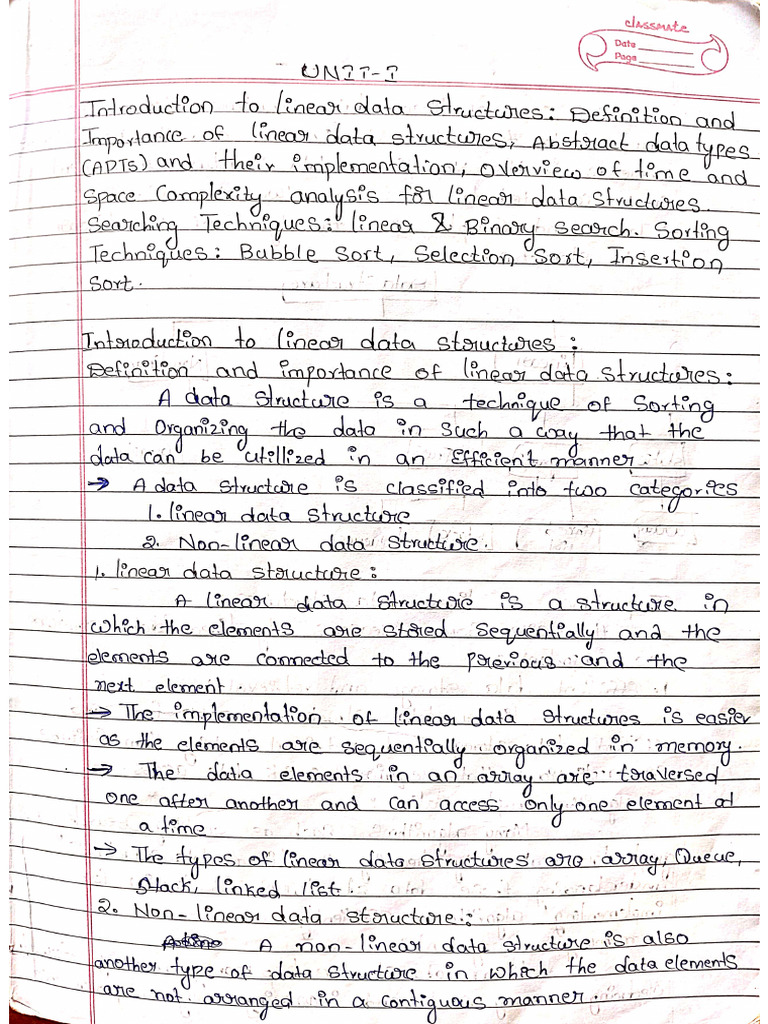 classmate
Date
Page
UNIT-I
Introduction to linear data structures: Definition and
Importance of linear data structures, Abstract data types
(ADTs) and their implementation, overview of time and
space complexity analysis for linear data structures.
Searching Techniques: linear & Binary search. Sorting
Techniques: Bubble sort, Selection Sort, Insertion
sort.
Introduction to linear data structures :
Definition and importance of linear data structures:
A data structure is a technique of Sorting
and Organizing the data in such a way that the
data can be utillized in an Efficient manner.
→ A data structure is classified into two categories
1. linear data structure
2. Non-linear data structure.
1. linear data structure :
A linear data structure is a structure in
which the elements are stored sequentially and the
elements are connected to the previous and the
next element.
→ The implementation of linear data structures is easier
as the elements are sequentially organized in memory.
→ The data elements in an array are traversed
one after another and can access only one element at
a time.
→ The types of linear data structures are array, Queue,
Stack, linked list
2. Non-linear data structure :
A non-linear data structure is also
another type of data structure in which the data elements
are not arranged in a contiguous manner.